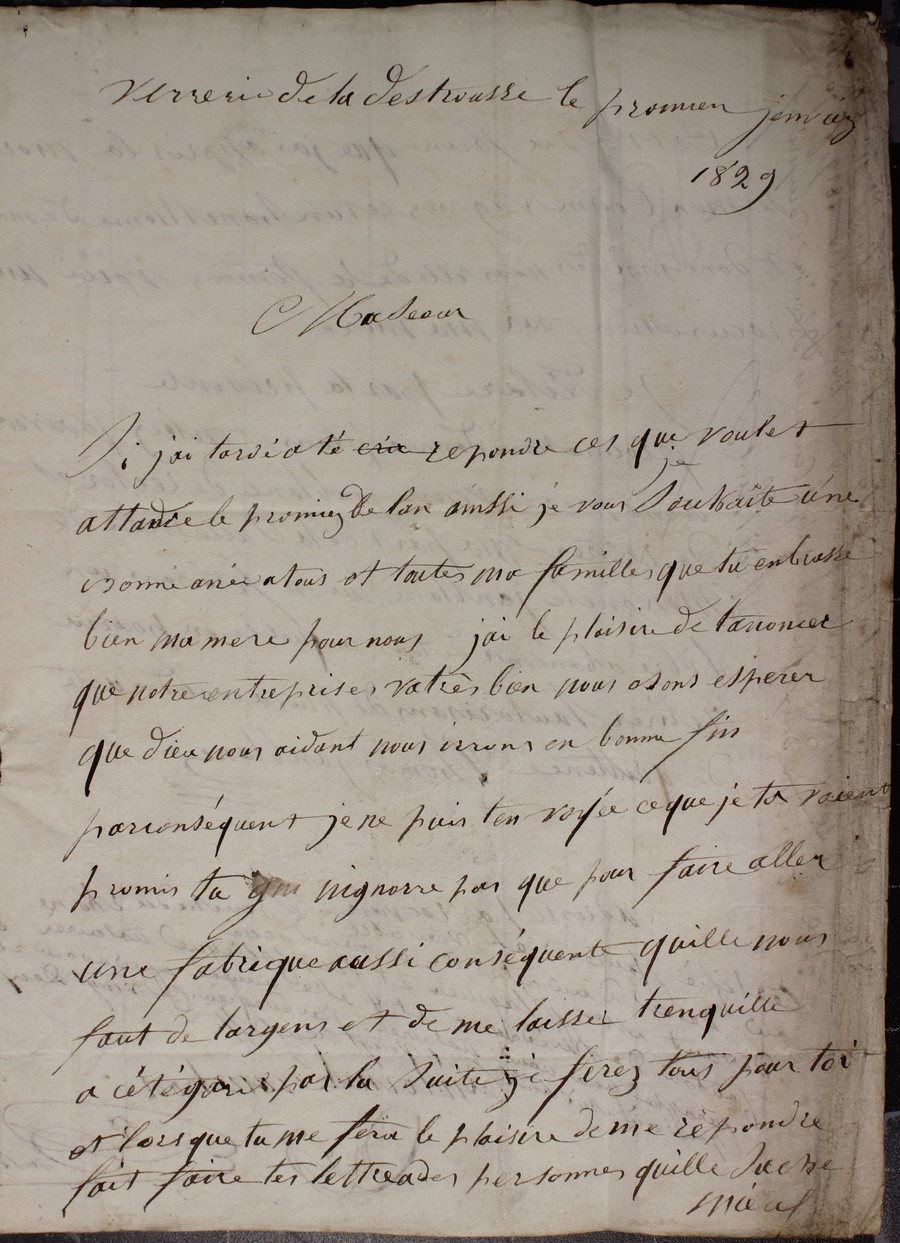 verrerie de la destrousse le promier janvier
1829
Ma Seour
Si jai tardé a té repondre ces que voules
je
attandre le promier de lan ainssi je vous Souhaite une
bonne anée a tous et toutes ma familles que tu enbrasse
bien ma mere pour nous jai le plaisire de tanoncer
que notre entreprises va très bien nous osons esperer
que dieu nous aidant nous irrons en bonne fin
parconséquent je ne puis ten voyée ce que je ta vaient
promis tu nignorre pas que pour faire aller
une fabrique aussi conséquente quille nous
faut de largens et de me laisser trenquille
a cét égard par la Suite je ferez tous pour toi
et lorsque tu me fera le plaisire de me répondre
fait faire tes lettre a des personnes quille Sache
mieux